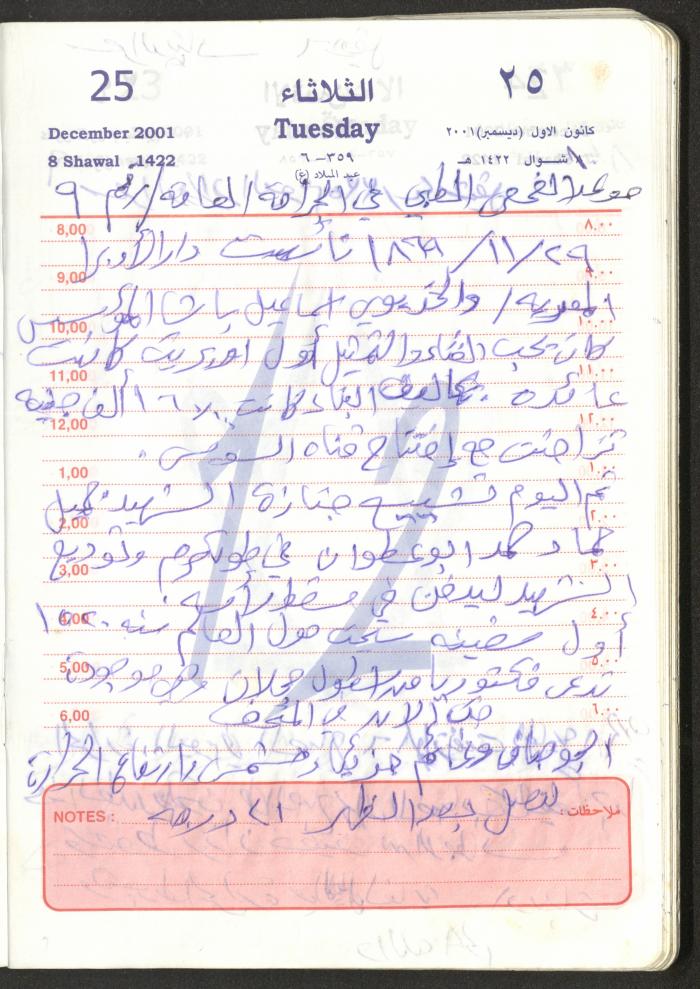 25 الثلاثاء ٢٥
December 2001 Tuesday كانون الاول (ديسمبر) ٢٠٠١
8 Shawal 1422 ٣٥٩-٦ ٨ شوال ١٤٢٢هـ
عيد الميلاد (غ)
موعد الفحص الطبي في الجراحة العامة / رقم ٩
8,00 ٨.٠٠
٢٩ / ١١ / ١٨٦٩ تأسست دار الأوبرا
9,00 ٩.٠٠
المصرية / والخديوي اسماعيل باشا المؤسس
10,00 ١٠.٠٠
كان يحب الغناء والتمثيل أول اوبريت كانت
11,00 ١١.٠٠
عائدة تكاليف البناء كانت ١٦٠ ألف جنيه
12,00 ١٢.٠٠
تزامنت مع إفتتاح قناة السويس .
1,00 ١.٠٠
تم اليوم تشييع جنازة الشهيد جميل
2,00 ٢.٠٠
حماد محمد ابو عطوان في طولكرم وتوديع
3,00 ٣.٠٠
الشهيد ليدفن في مسقط رأسه .
4,00 ٤.٠٠
أول سفينه سيحت حول العالم سنه ١٥٢٠
5,00 ٥.٠٠
تدعى فكتوريا من اسطول مجلان وهي موجودة
6,00 ٦.٠٠
حتى الآن في المتحف
الجو صافي وغائم جزئياً ومشمس وارتفاع الحرارة
NOTES : لتصل بعد الظهر ٢١ درجة ملاحظات :
12